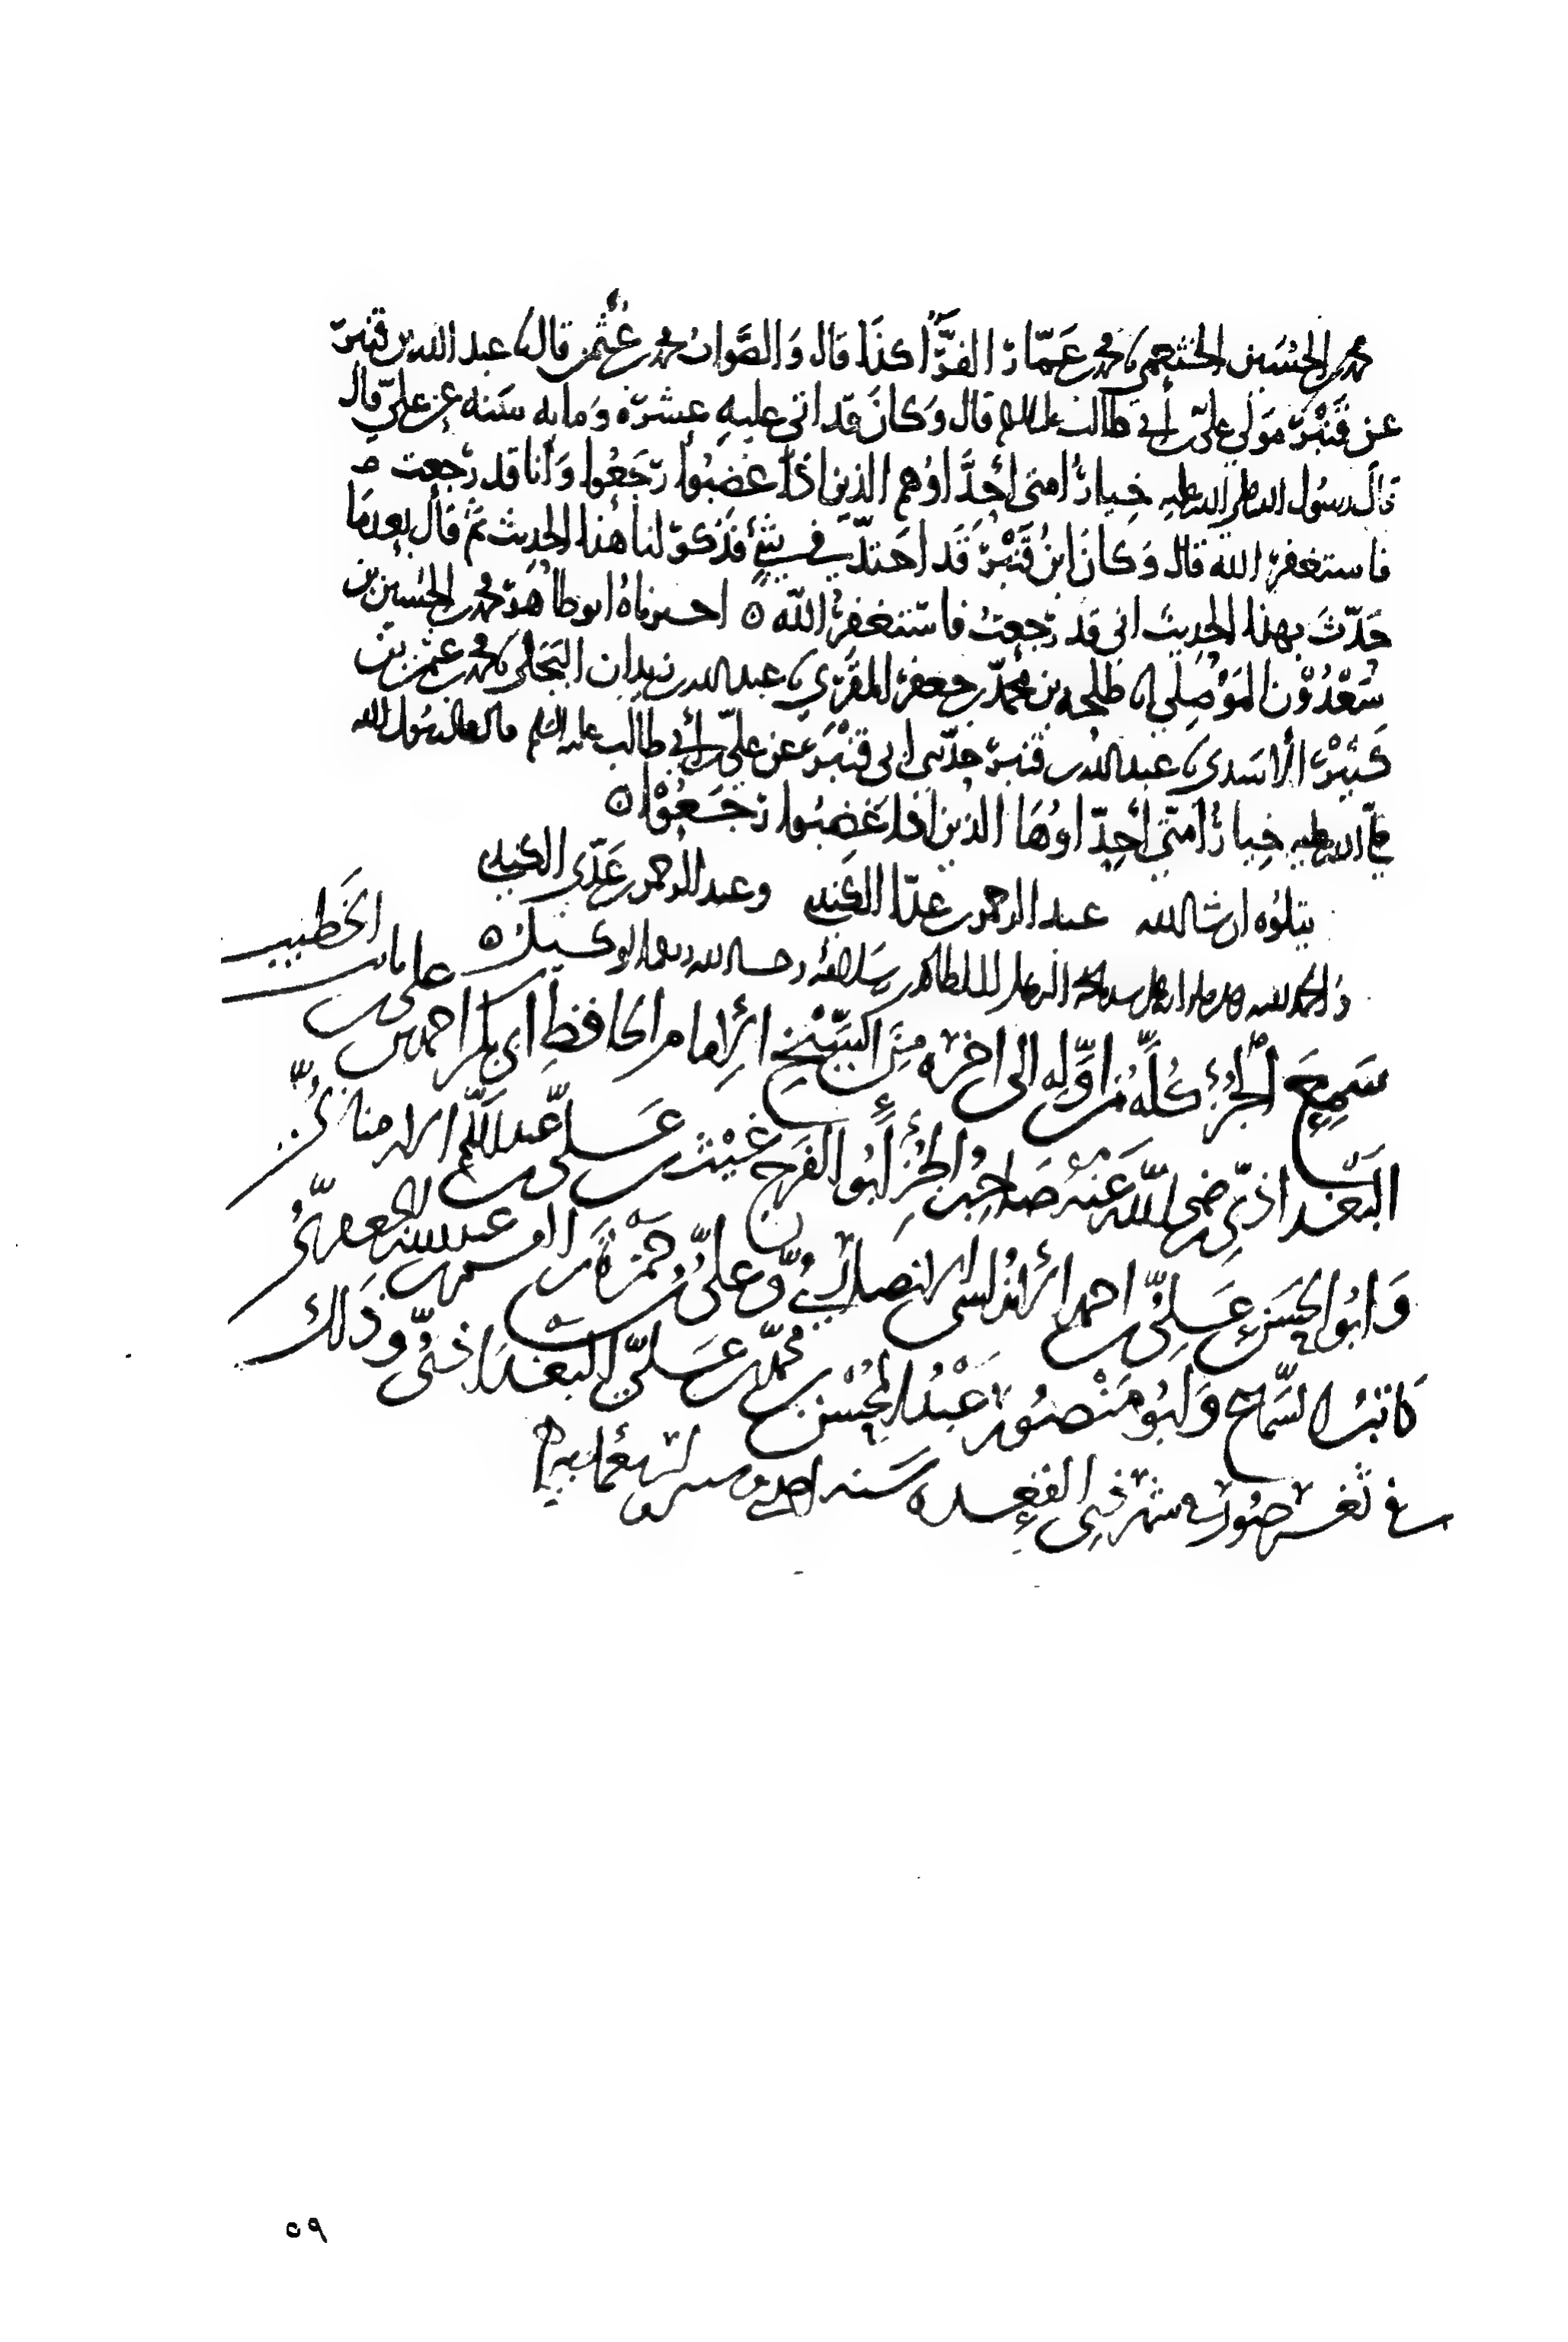 محمد بن الحسين الخثعمي نا محمد بن عمار الفرا كذا قال والصواب محمد بن عثمن قال نا عبد الله بن قنبر
عن قنبر مولى علي بن أبي طالب عليه السلام قال وكان قد اتى عليه عشرة ومايه سنه عن علي قال
قال رسول الله صلى الله عليه خيار امتي احداوهم الذين اذا غضبوا رجعوا وانا قد رجعت
فاستغفر الله قال وكان ابن قنبر قد احتد في شئ فذكر لنا هذا الحديث ثم قال بعدما
حدث بهذا الحديث اني قد رجعت فاستغفر الله ه اخبرناه ابو طاهر محمد بن الحسين بن
سعدون الموصلي نا طلحه بن محمد بن جعفر المقري نا عبد الله بن زيدان البجلي نا محمد بن عثمن بن
الاسدي نا عبد الله بن قنبر حدثني ابي قنبر عن علي بن أبي طالب عليه السلام قال قال رسول الله
صلى الله عليه خيار امتي احداوها الذين اذا غضبوا رجعوا ه
يتلوه ان شا الله عبد الرحمن بن عدا الكندي وعبد الرحمن بن عدي الكندي
والحمد لله وصلى الله على سيدنا محمد النبي واله الطاهرين وسلامه وحسبنا الله ونعم الوكيل ه
سمع الجزء كله من اوله الى اخره من الشيخ الامام الحافظ ابي بكر احمد بن علي بن ثابت الخطيب
البغداذي رضي الله عنه صاحب الجزء ابو الفرج غيث بن علي بن عبد السلام الارمنازي
وابو الحسن علي بن احمد الاندلسي الانصاري وعلي بن حمزة بن عبد الله الجعفري
كاتب السماع وابو منصور عبد المحسن بن محمد بن علي البغداذي وذلك
في ثغر صور في شهر ذي القعده سنه احدى وستين واربعمايه
٥٩